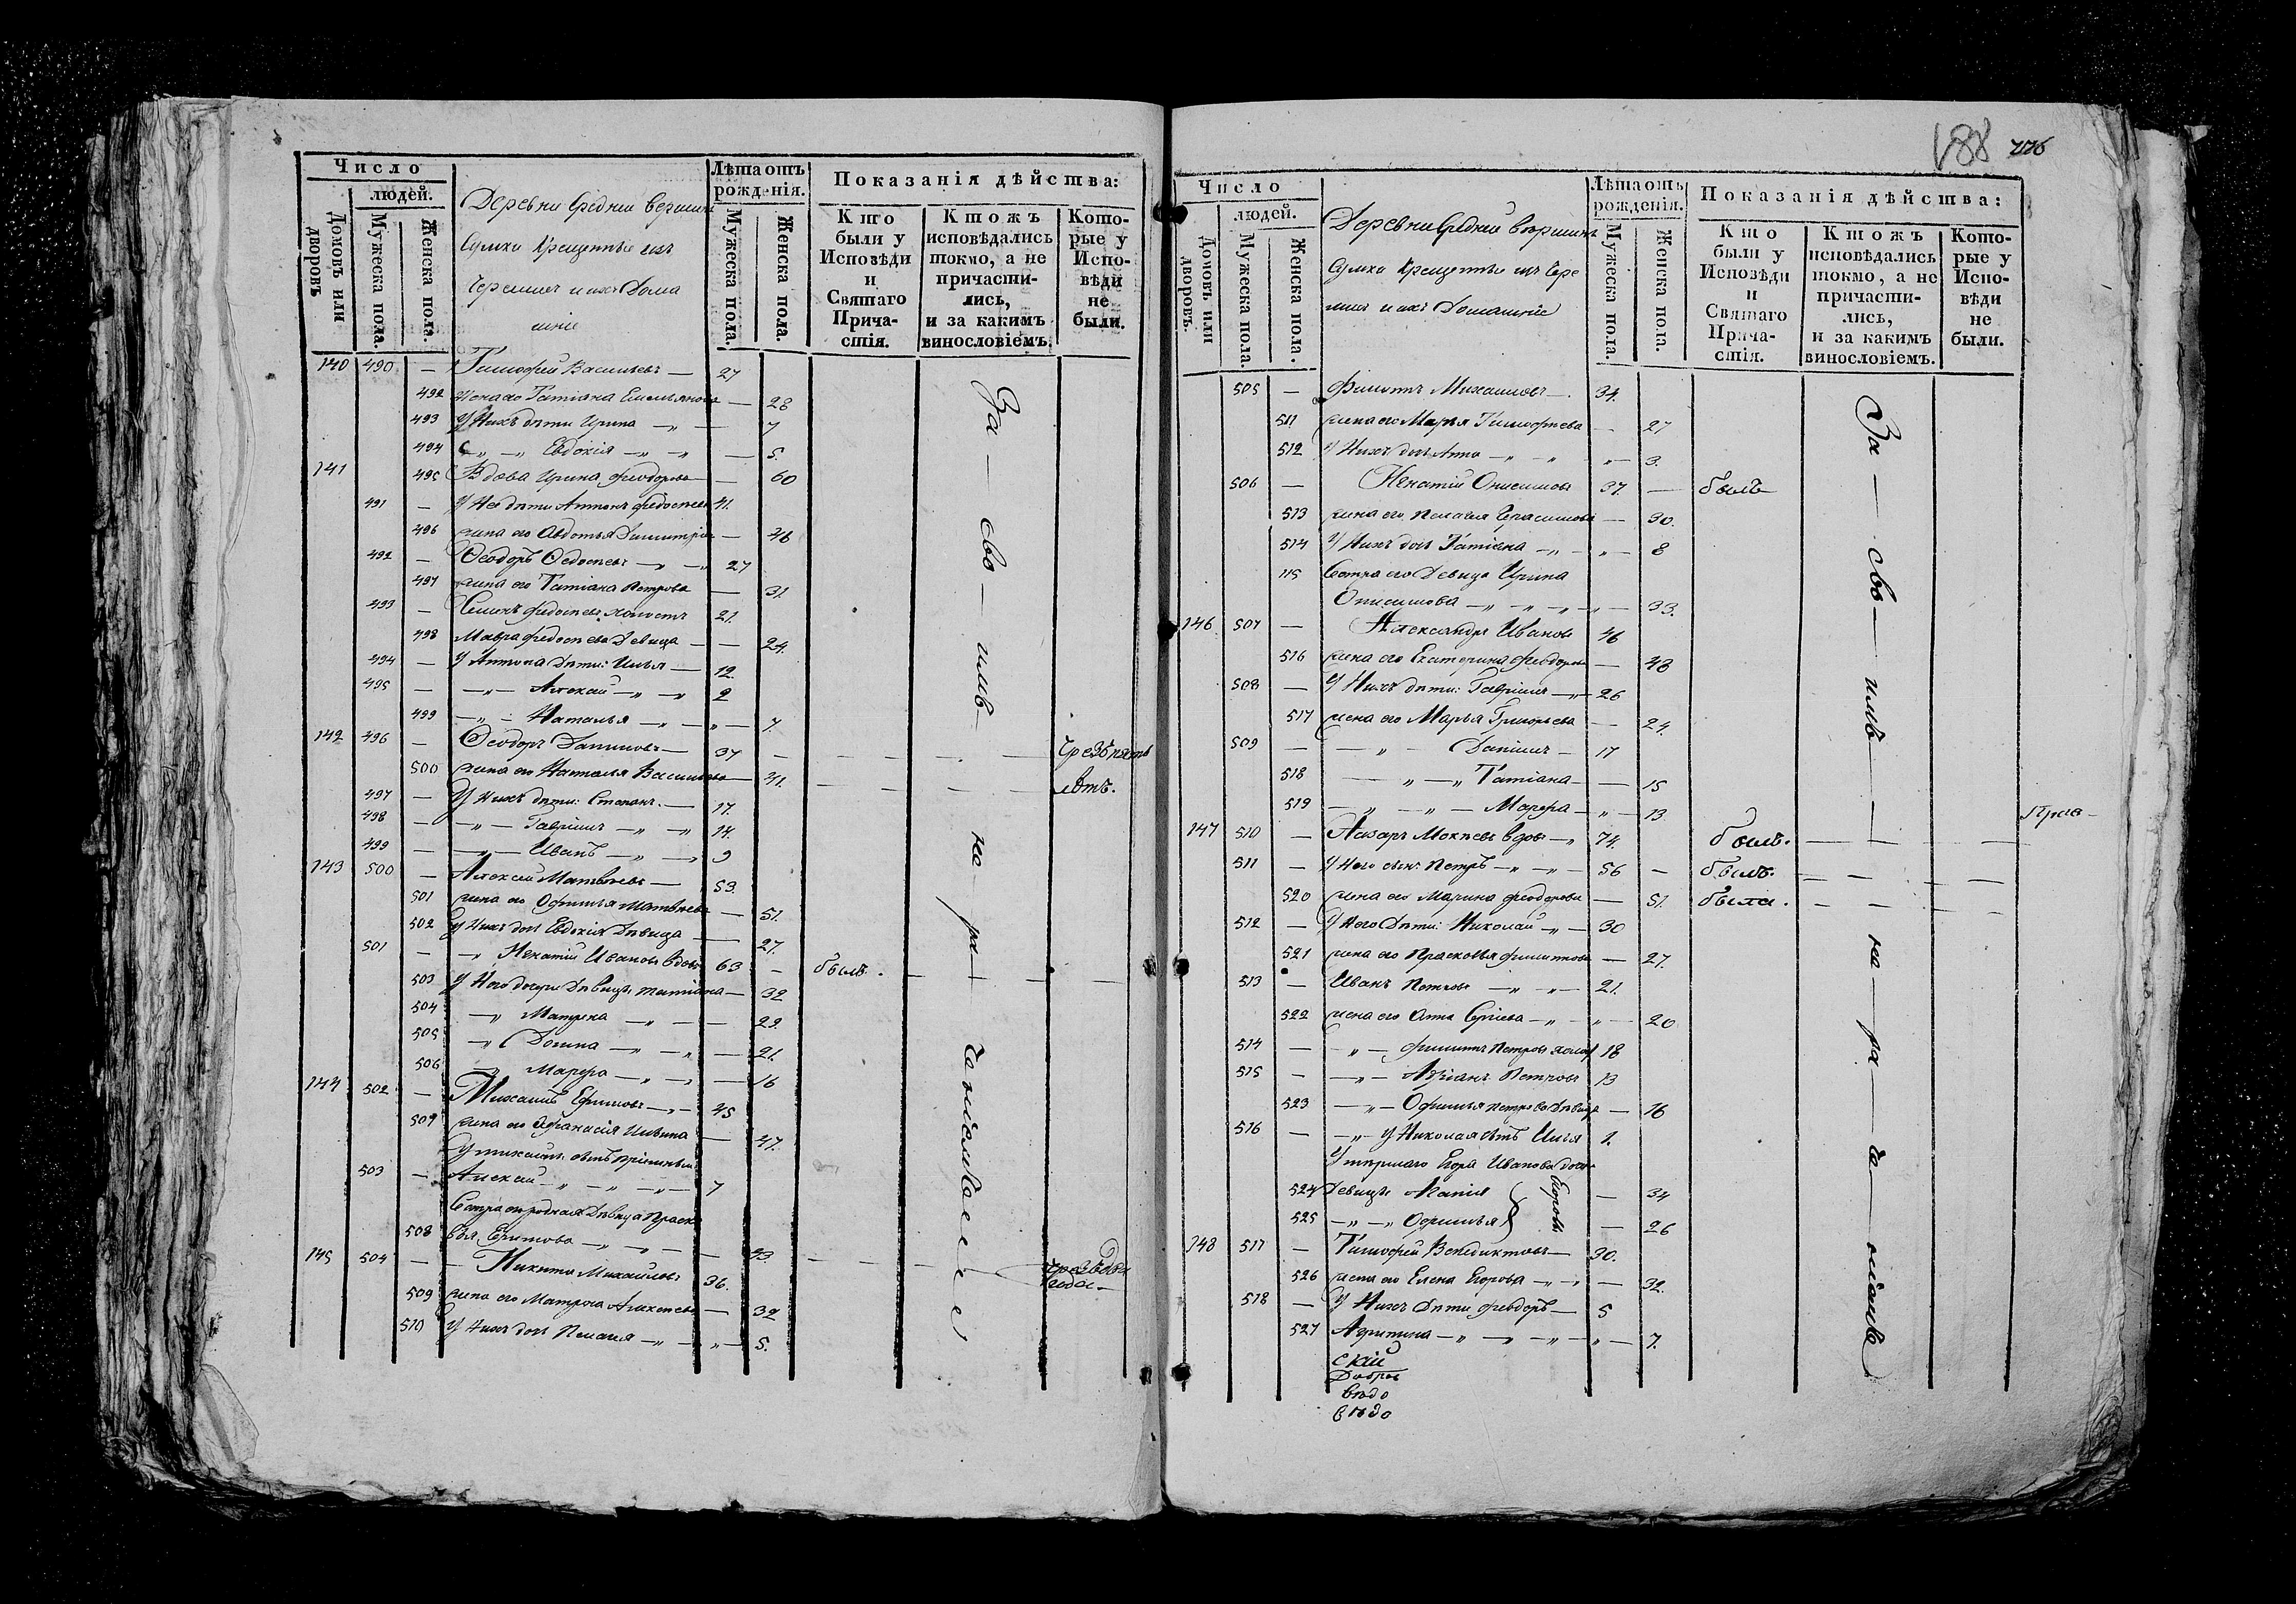 Число
людей.
Домовъ или дворовъ
Мужеска пола.
Женска пола.
Деревни Средней вершины
Сумки Крещенные изъ
Черемис и ихъ Дома
шніе
Лѣта отъ рожденія.
Мужеска пола.
Женска пола.
Показанія дѣйства:
Кто были у Исповѣди и Святаго Причастія.
Ктожъ исповѣдались токмо, а не причастились, и за какимъ винословіемъ.
Которые у Исповѣди не были.
140 490 — Тимофей Васильевъ — 27
492 жена его Татіана Емельянова — 28
493 У Нихъ дѣти Ирина — 7
494 Евдокія — 5.
141 495 Вдова Ирина Феодорова — 60
491 — У Нея дѣти Антонъ Федосѣевъ 41.
496 жена его Авдотья Димитріева — 46
492 — Феодоръ Федосѣевъ — 27
497 жена его Татіана Петрова — 31.
493 — Семенъ Федосѣевъ холостъ 21.
498 Мавра Федосѣева Девица — 24.
494 — У Антона Дѣти: Илья — 12.
495 — Алексѣй — 2
499 Наталья — 7.
142 496 — Феодоръ Даниловъ — 37 — Чрезъ пять
500 жена его Наталья Васильева — 41. — лѣтъ.
497 — У Нихъ дѣти: Степанъ. — 17.
498 — Гавріилъ — 14.
499 — Иванъ — 9
143 500 — Алексей Матвѣевъ — 53.
501 жена его Офимья Матвѣева — 51.
502 У Нихъ доч Евдокія Дѣвица — 27.
501 — Игнатій Ивановъ вдовъ 63 — былъ.
503 У Него дочери Дѣвицы Татіана — 32
504 Матрена — 29.
505 Домна — 21.
506 Марфа — 16
144 502 — Михаилъ Ефимовъ — 45
507 жена его Афанасія Ильина — 47.
503 — Алексѣй — 7
Сестра его родная Дѣвица Праско
508 вья Ефимова — 43.
145 504 — Никита Михайловъ 36. — чрезъ два года.
509 жена его Матрона Алексѣева — 32
510 У Нихъ доч Пелагея — 5.
За — сво — имъ — не — ра — чаніемъ
188 776
Число
людей.
Домовъ или дворовъ.
Мужеска пола.
Женска пола.
Деревни Средней вершины
Сумки Крещенные изъ Чере
мис и ихъ Домашніе
Лѣта отъ рожденія.
Мужеска пола.
Женска пола.
Показанія дѣйства:
Кто были у Исповѣди и Святаго Причастія.
Ктожъ исповѣдались токмо, а не причастились, и за какимъ винословіемъ.
Которые у Исповѣди не были.
505 — Филипъ Михаиловъ — 34.
511 жена его Марья Тимофеева — 27
512 У Нихъ доч Анна — 3.
506 — Игнатій Онисимовъ 37. — былъ
513 жена его Пелагея Герасимова — 30.
514 У Нихъ доч Татіана — 8
115 Сестра его Девица Ирина
Онисимова — 33.
146 507 — Александръ Ивановъ 46
516 жена его Екатерина Феодорова — 48
508 — У Нихъ дѣти: Гавріилъ — 26
517 жена его Марья Григорьева — 24.
509 — Даніилъ — 17
518 Татіана — 15
519 Марфа — 13.
147 510 — Назаръ Мокѣевъ вдовъ — 74. былъ.
511 — У Него сынъ Петръ — 56 — былъ.
520 жена его Марина Феодорова — 51. была.
512 — У Него Дѣти: Николай — 30
521 жена его Прасковья Филипова — 27.
513 — Иванъ Петровъ — 21.
522 жена его Анна Сергіева — 20
514 — Филипъ Петровъ холос 18
515 — Адріанъ Петровъ 13
523 Офимья Петрова Дѣвица — 16
516 — У Николая сынъ Илья 1.
Умершаго Егора Иванова доч
524 Девицы Марія } Егоровы — 34
525 Офимья — 26
148 517 — Тимофей Венедиктовъ — 30.
526 жена его Елена Егорова — 32.
518 — У Нихъ Дѣти Феодоръ — 5
527 Агрипина — 7.
скій
вѣдо
вѣдо
За — сво — имъ — не — ра — ча — ніемъ